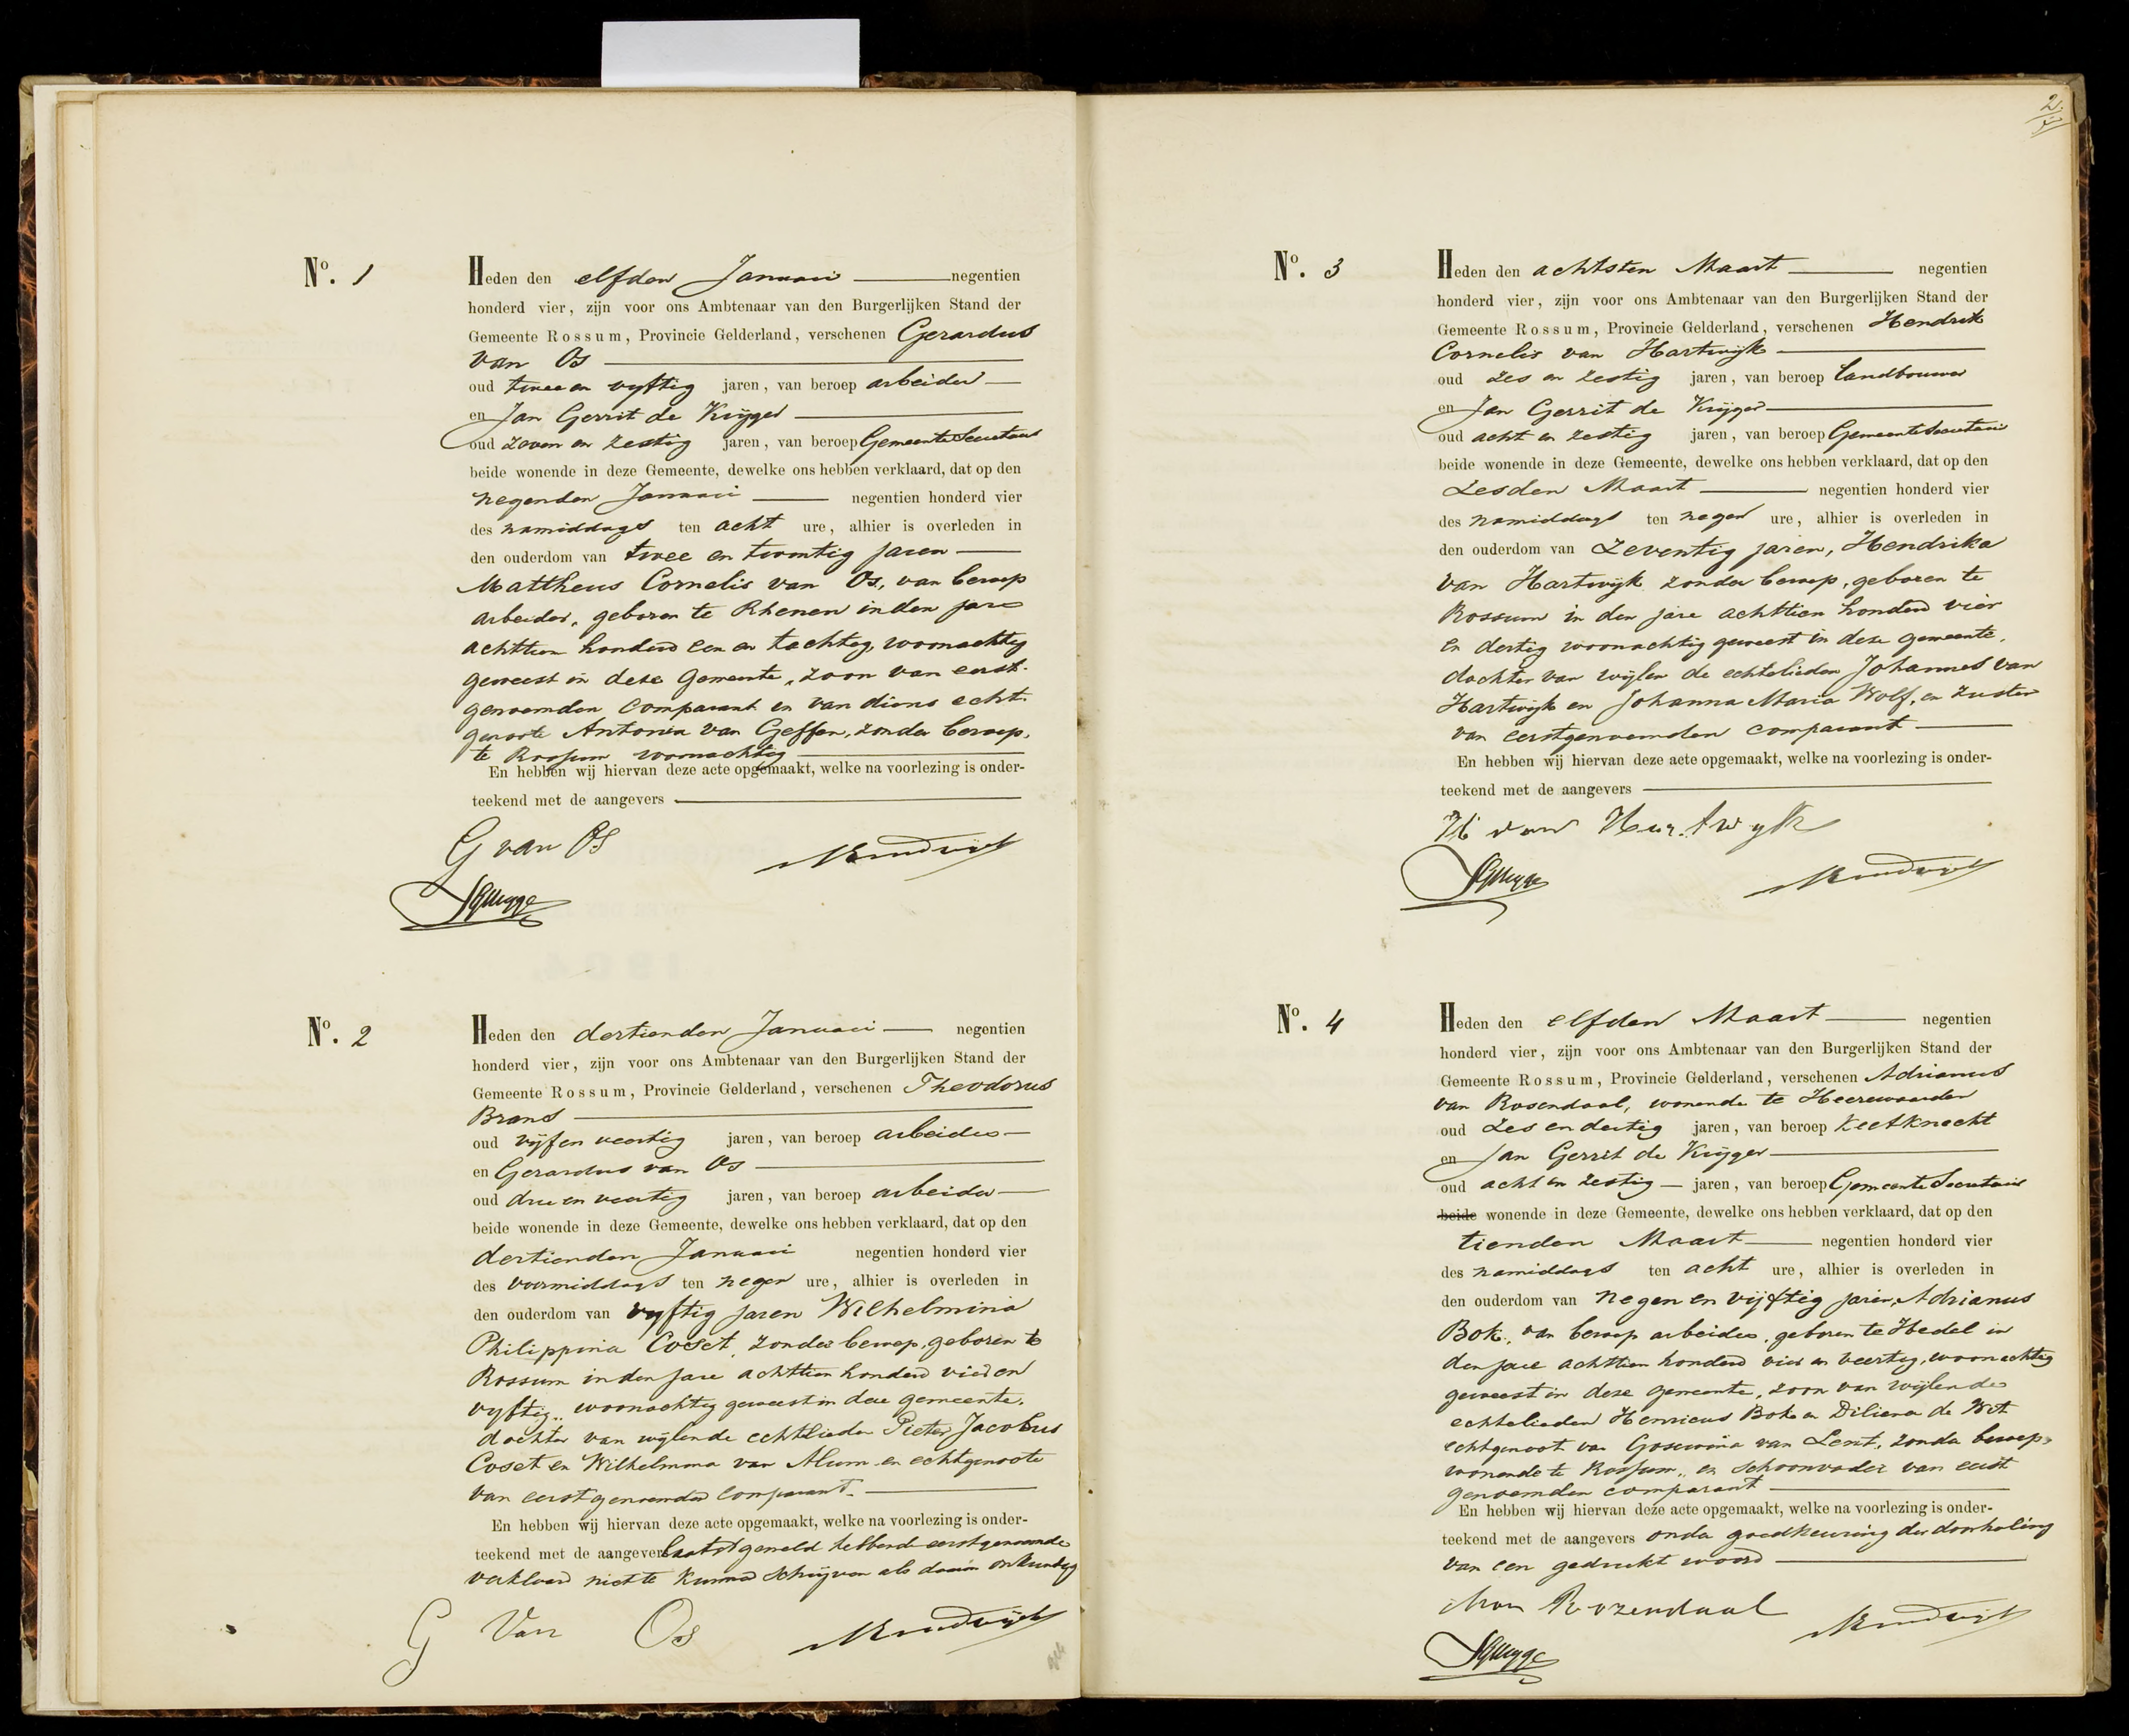 No. 1
Heden den elfden Januari negentien
honderd vier, zijn voor ons Ambtenaar van den Burgerlijken Stand der
Gemeente Rossum, Provincie Gelderland, verschenen Gerardus
van Os
oud twee en vyftig jaren, van beroep arbeider
en Jan Gerrit de Kruijger
oud zeven en zestig jaren, van beroep Gemeente Secretaris
beide wonende in deze Gemeente, dewelke ons hebben verklaard, dat op den
negenden Januari negentien honderd vier
des namiddags ten acht ure, alhier is overleden in
den ouderdom van twee en twintig jaren
Mattheus Cornelis van Os, van beroep
arbeider, geboren te Rhenen in den jare
achttien honderd een en tachtig, woonachtig
geweest in deze Gemeente, zoon van eerst-
genoemden Comparant en van diens echt-
genoote Antonia van Geffen, zonder beroep,
te Rossum woonachtig
En hebben wij hiervan deze acte opgemaakt, welke na voorlezing is onder-
teekend met de aangevers
G van Os
No. 2
Heden den dertienden Januari negentien
honderd vier, zijn voor ons Ambtenaar van den Burgerlijken Stand der
Gemeente Rossum, Provincie Gelderland, verschenen Theodorus
Brans
oud vijf en veertig jaren, van beroep arbeider
en Gerardus van Os
oud drie en veertig jaren, van beroep arbeider
beide wonende in deze Gemeente, dewelke ons hebben verklaard, dat op den
dertienden Januari negentien honderd vier
des voormiddags ten negen ure, alhier is overleden in
den ouderdom van vyftig jaren Wilhelmina
Philippina Coset, zonder beroep, geboren te
Rossum in den jare achttien honderd vier en
vyftig, woonachtig geweest in deze gemeente,
dochter van wijlen de echtlieden Pieter Jacobus
Coset en Wilhelmina van Alum en echtgenoote
van eerstgenoemden comparant.
En hebben wij hiervan deze acte opgemaakt, welke na voorlezing is onder-
teekend met de aangever laatstgemeld hebbende eerstgenoemde
verklaard niet te kunnen schrijven als daarin onkundig
G Van Os
2
No. 3
Heden den achtsten Maart negentien
honderd vier, zijn voor ons Ambtenaar van den Burgerlijken Stand der
Gemeente Rossum, Provincie Gelderland, verschenen Hendrik
Cornelis van Hartwijk
oud zes en zestig jaren, van beroep landbouwer
en Jan Gerrit de Kruijger
oud acht en zestig jaren, van beroep Gemeente Secretaris
beide wonende in deze Gemeente, dewelke ons hebben verklaard, dat op den
zesden Maart negentien honderd vier
des namiddags ten negen ure, alhier is overleden in
den ouderdom van zeventig jaren, Hendrika
van Hartwijk zonder beroep, geboren te
Rossum in den jare achttien honderd vier
en dertig woonachtig geweest in deze gemeente,
dochter van wijlen de echtelieden Johannes van
Hartwijk en Johanna Maria Wolf, en zuster
van eerstgenoemden comparant
En hebben wij hiervan deze acte opgemaakt, welke na voorlezing is onder-
teekend met de aangevers
H van Hartwyk
No. 4
Heden den elfden Maart negentien
honderd vier, zijn voor ons Ambtenaar van den Burgerlijken Stand der
Gemeente Rossum, Provincie Gelderland, verschenen Adrianus
van Rosendaal, wonende te Heerewaarden
oud zes en dertig jaren, van beroep Keetknecht
en Jan Gerrit de Kruijger
oud acht en zestig jaren, van beroep Gemeente Secretaris
beide wonende in deze Gemeente, dewelke ons hebben verklaard, dat op den
tienden Maart negentien honderd vier
des namiddags ten acht ure, alhier is overleden in
den ouderdom van negen en vijftig jaren, Adrianus
Bok, van beroep arbeider, geboren te Hedel in
den jare achttien honderd vier en veertig, woonachtig
geweest in deze gemeente, zoon van wijlen de
echtelieden Henricus Bok en Diliena de Wit
echtgenoot van Goswina van Lent, zonder beroep,
wonende te Rossum, en schoonvader van eerst
genoemden comparant
En hebben wij hiervan deze acte opgemaakt, welke na voorlezing is onder-
teekend met de aangevers onder goedkeuring der doorhaling
van een gedrukt woord
van Rozendaal